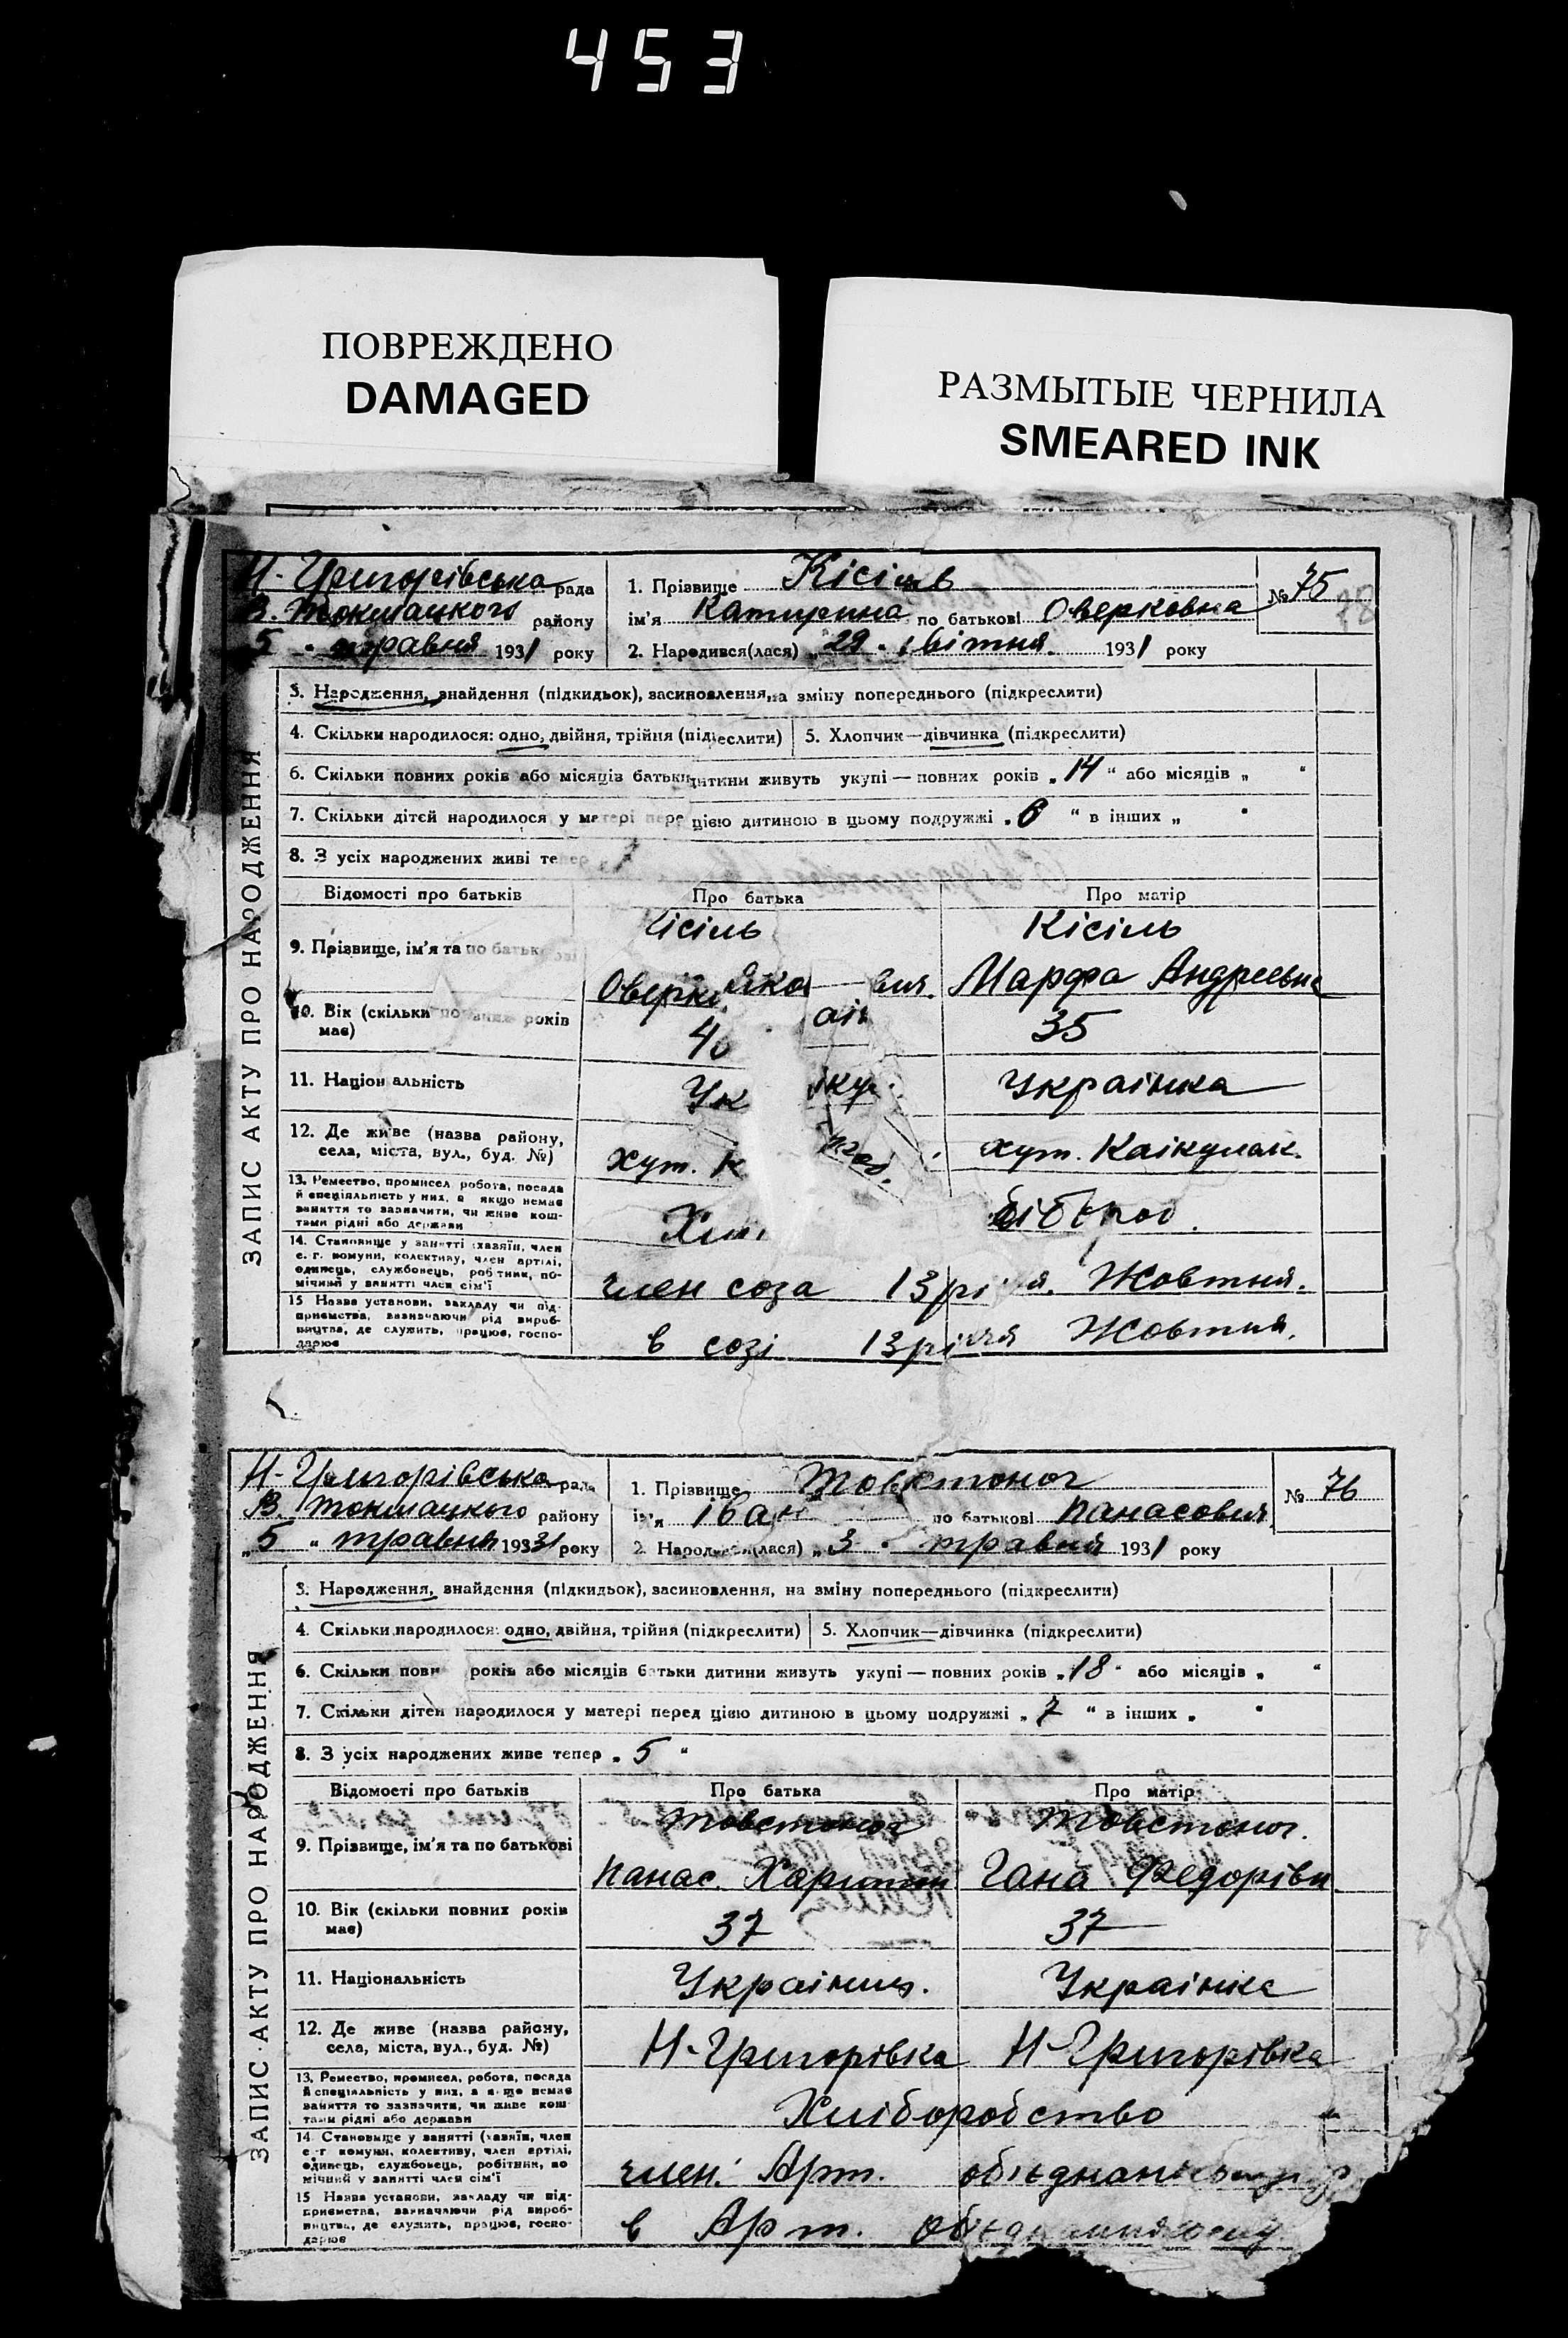 453
ПОВРЕЖДЕНО
DAMAGED
РАЗМЫТЫЕ ЧЕРНИЛА
SMEARED INK
Н-Григорівська рада
В. Токмацкого району
5 травня 1931 року
1. Прізвище Кісіль
ім'я Катирина по батькові Оверковна
2. Народився(лася) „29 " квітня 1931 року
№ 75
78
ЗАПИС АКТУ ПРО НАРОДЖЕННЯ
3. Народження, знайдення (підкидьок), засиновлення, на зміну попереднього (підкреслити)
4. Скільки народилося: одно, двійня, трійня (підкреслити) 5. Хлопчик—дівчинка (підкреслити)
6. Скільки повних років або місяців батьки дитини живуть укупі — повних років „ 14 " або місяців „ "
7. Скільки дітей народилося у матері перед цією дитиною в цьому подружжі „ 6 " в інших „ "
8. З усіх народжених живі тепер
Відомості про батьків Про батька Про матір
9. Прізвище, ім'я та по батькові
Кісіль Кісіль
Оверк Яко вич. Марфа Андреевна
10. Вік (скільки повних років має) 35
11. Національність Ук Українка
12. Де живе (назва району, села, міста, вул., буд. №) хут. К хут. Каікулак.
13. Ремество, промисел, робота, посада
й спеціяльність у них, а якщо немає
заняття то зазначити, чи живе кош-
тами рідні або держави
14. Становище у занятті (хазяїн, член
с.-г. комуни, колективу, член артілі,
одинець, службовець, робітник, по-
мічний у занятті член сім'ї
член соза 13 річчя Жовтня.
15 Назва установи, закладу чи під-
приємства, зазначаючи рід вироб-
ництва, де служить, працює, госпо-
дарює
в созі 13 річчя Жовтня.
Н-Григорівська рада
В. Токмацкого району
„5 " травня 1931 року
1. Прізвище Товстоног
ім'я Іван по батькові Панасович
2. Народився(лася) „3 " травня 1931 року
№ 76
ЗАПИС АКТУ ПРО НАРОДЖЕННЯ
3. Народження, знайдення (підкидьок), засиновлення, на зміну попереднього (підкреслити)
4. Скільки народилося: одно, двійня, трійня (підкреслити) 5. Хлопчик—дівчинка (підкреслити)
6. Скільки повних років або місяців батьки дитини живуть укупі — повних років „ 18 " або місяців „ "
7. Скільки дітей народилося у матері перед цією дитиною в цьому подружжі „ 7 " в інших „ "
8. З усіх народжених живе тепер „ 5 "
Відомості про батьків Про батька Про матір
9. Прізвище, ім'я та по батькові
Товстоног Товстоног.
Панас Гана Федорівн
10. Вік (скільки повних років має) 37 37
11. Національність Українць. Українка
12. Де живе (назва району, села, міста, вул., буд. №) Н-Григорівка Н-Григорівка
13. Ремество, промисел, робота, посада
й спеціяльність у них, а якщо немає
заняття то зазначити, чи живе кош-
тами рідні або держави
Хліборобство
14. Становище у занятті (хазяїн, член
с.-г. комуни, колективу, член артілі,
одинець, службовець, робітник, по-
мічний у занятті член сім'ї
член. Арт.
15 Назва установи, закладу чи під-
приємства, зазначаючи рід вироб-
ництва, де служить, працює, госпо-
дарює
в Арт.